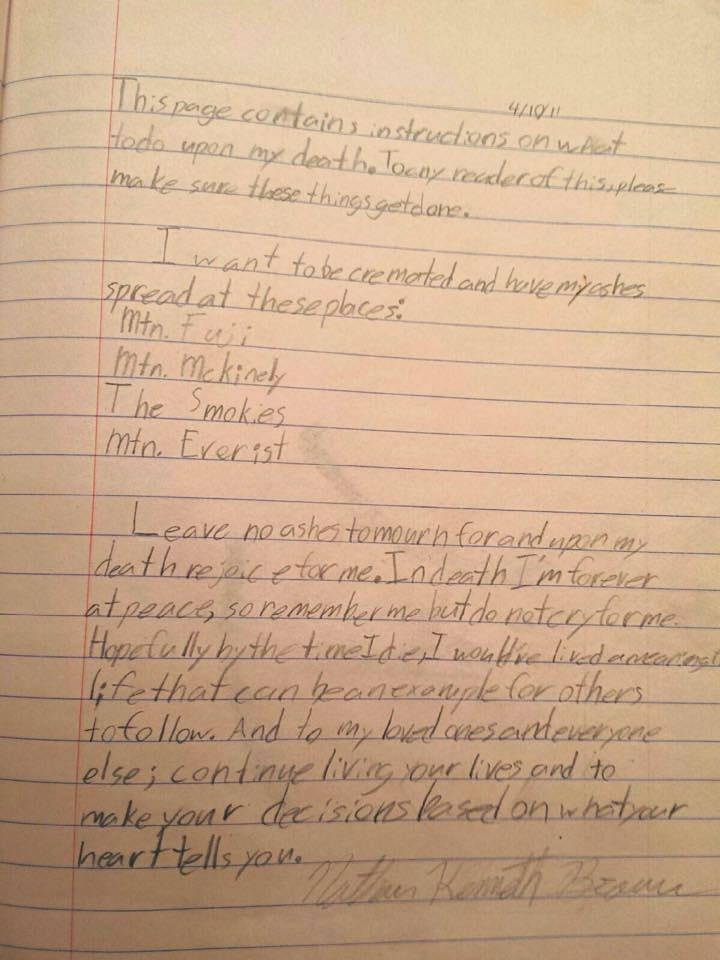 4/10/11
This page contains instructions on what
todo upon my death. To any reader of this, pleas
make sure these things get done.
I want to be cremated and have my ashes
spread at these places:
Mtn. Fuji
Mtn. Mckinely
The Smokies
Mtn. Everist
Leave no ashes to mourn for and upon my
death rejoice for me. In death I'm forever
at peace, so remember me but do not cry for me.
Hopefully by the time I die, I would've lived a meaningful
life that can be an example for others
to follow. And to my loved ones and everyone
else; continue living your lives and to
make your decisions based on what your
heart tells you.
Nathan Kenneth Brown